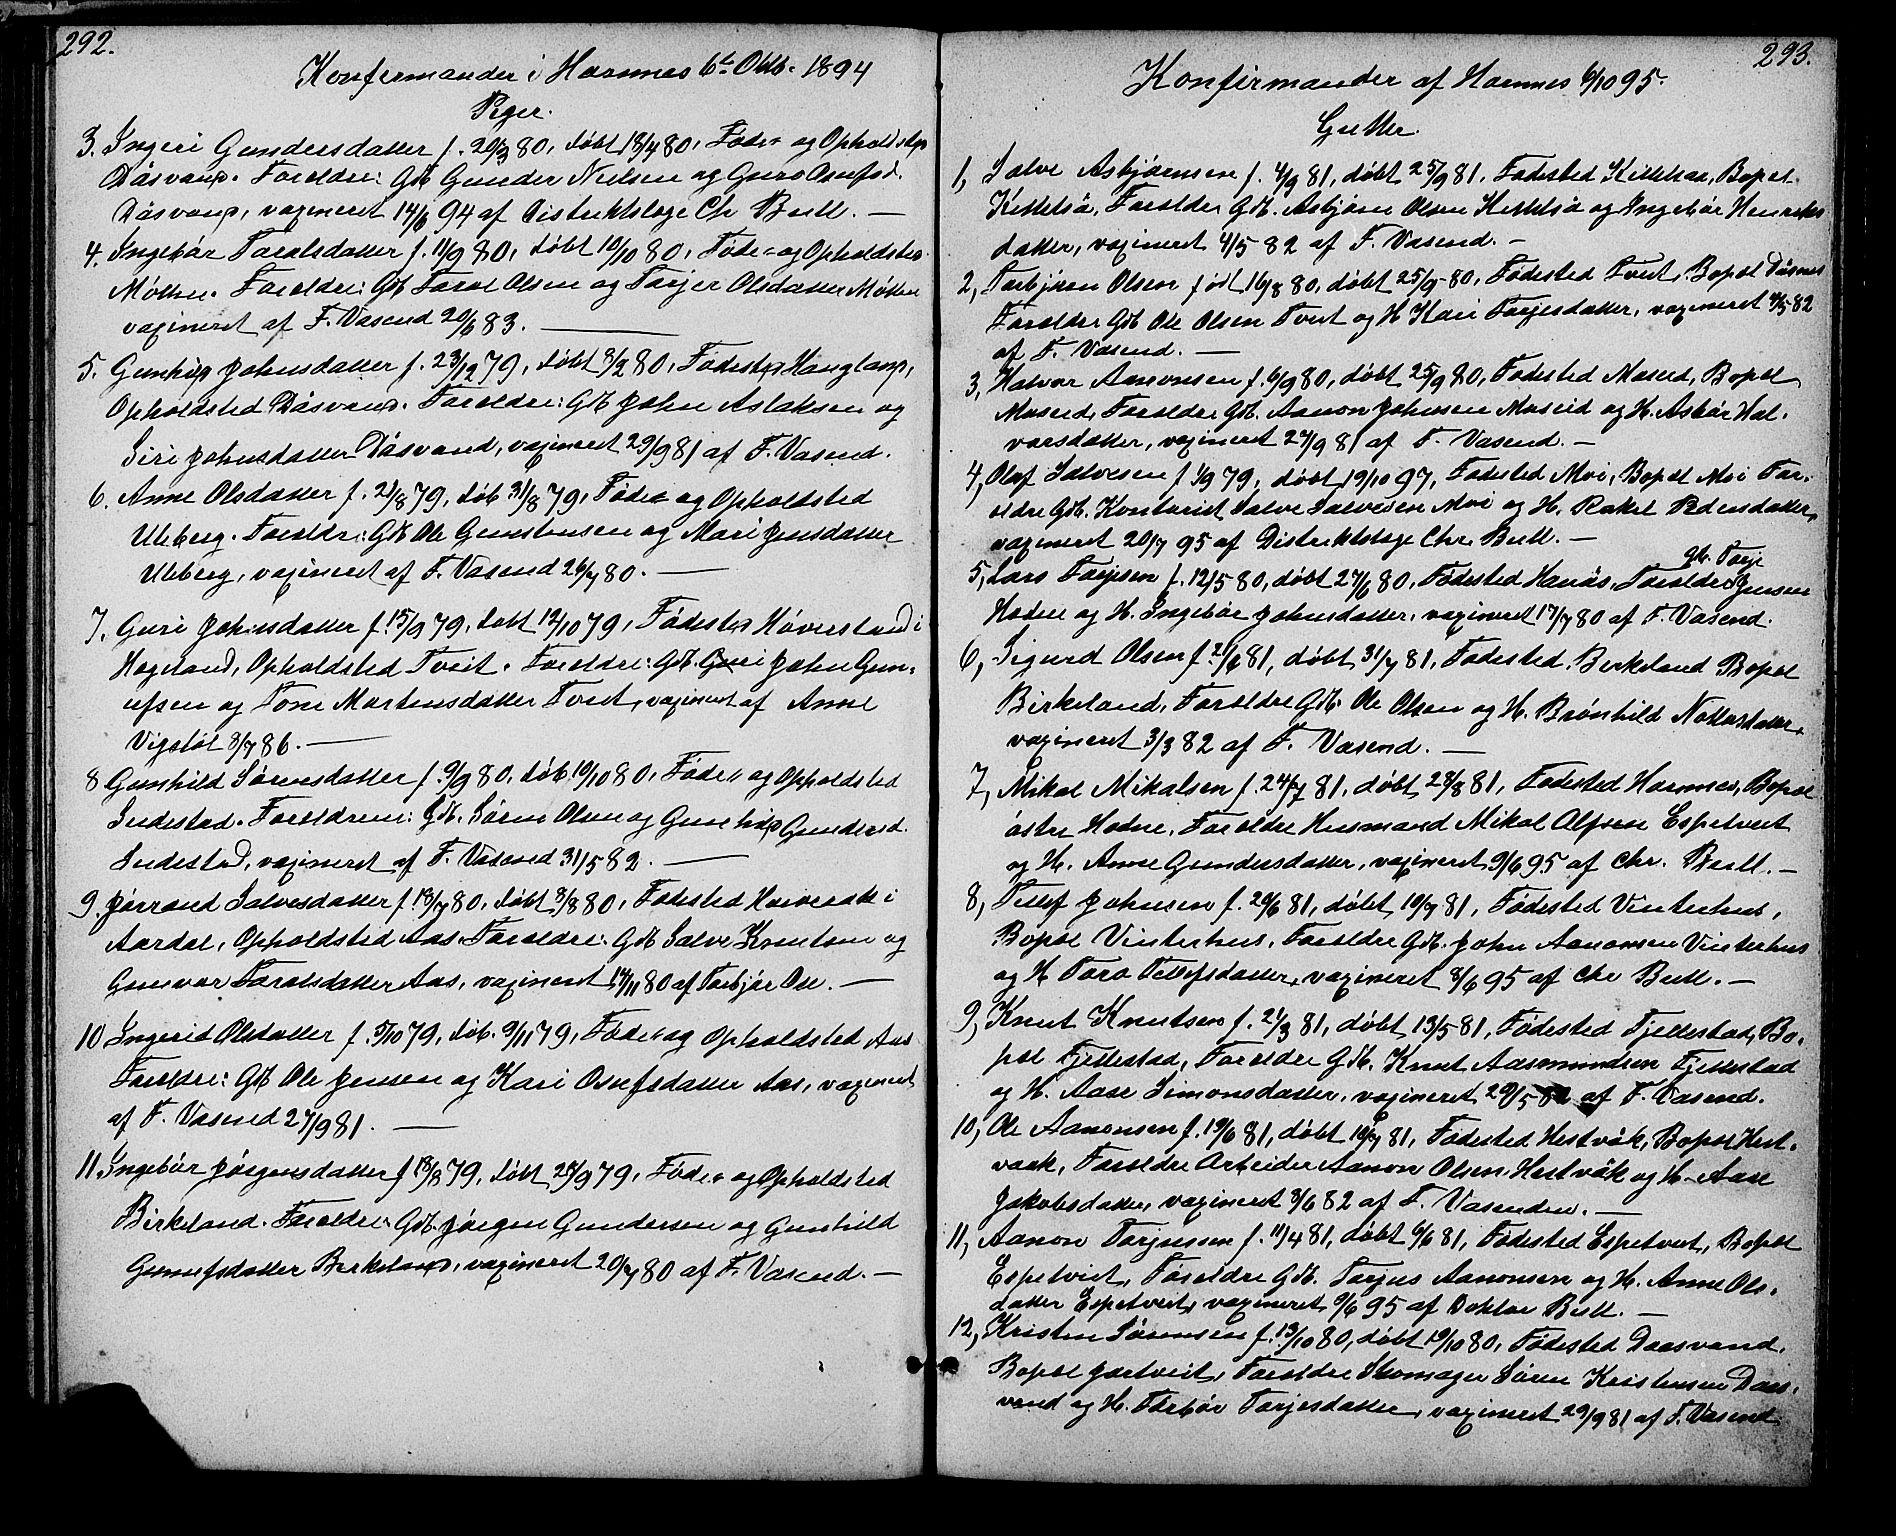 292.
Konfirmander i Hornnes 6te Oktb. 1894
Piger.
3. Ingeri Gundersdatter f. 20/3 80, døbt 18/4 80, Føde- og Opholdsted
Dåsvand. Forældre: Gdb Gunder Nielsen og Guro Osufsd.
Dåsvand, vaxineret 14/6 94 af Distriktslæge Chr Bull. —
4. Ingebår Taralsdatter f. 11/9 80, døbt 10/10 80, Føde- og Opholdsted
Møkken. Forældre: Gdb Taral Olsen og Torjer Olsdatter
vaxineret af F. Vasend 20/6 83. —
5. Gunhild Johnsdatter f. 23/12 79, døbt 8/2 80, Fødested Hanglam,
Opholdsted Dåsvand. Forældre: Gdb John Aslaksen og
Siri Johnsdatter Dåsvand, vaxineret 29/9 81 af F. Vasend.
6. Anne Olsdatter f. 21/8 79, døb. 31/8 79, Føde- og Opholdsted
Uleberg. Forældre: Gdb Ole Gunstensen og Mari Jensdatter
Uleberg, vaxineret af F. Vasend 26/7 80. —
7. Guri Johnsdatter f. 15/9 79, døbt 12/10 79, Fødested Høverstand i
Hægeland, Opholdsted Tveit. Forældre: Gdb. John Gun-
ufsen og Tone Martensdatter Tveit, vaxineret af Anne
Vigstøl 8/7 86. —
8 Gunhild Sørensdatter f. 9/9 80, døb. 10/10 80, Føde- og Opholdsted
Sudestad. Forældrene: Gdb. Søren Olsen og Gunhild Gundersd.
Sudestad, vaxineret af F. Vasend 31/5 82. —
9. Jørrand Salvesdatter f. 18/7 80, døbt 8/8 80, Fødested i
Aardal, Opholdsted Aas. Forældre: Gdb Salve Knutson og
Gunvor Taralsdatter Aas, vaxineret 14/11 80 af Torbjør Ose. —
10 Ingerid Olsdatter f. 5/10 79, døb. 9/11 79, Føde- og Opholdsted Aas
Forældre: Gdb Ole Jensen og Kari Osufsdatter Aas, vaxineret
af F. Vasend 27/9 81. —
11. Ingebår Jørgensdatter f 13/8 79, døbt 28/9 79, Føde- og Opholdsted
Birkeland. Forældre: Gdb. Jørgen Gundersen og Gunhild
Gunufsdatter Birkeland, vaxineret 20/7 80 af F. Vasend. —
293.
Konfirmander af Hornnes 6/10 95.
Gutter.
1, Salve Asbjørnsen f. 4/9 81, døbt 25/9 81, Fødested Kittelsaa, Bopæl
Kittelså, Forældre Gdb. Asbjørn Olsen Kittelså og Ingebår Henriks
datter, vaxineret 4/5 82 af F. Vasend. —
2, Torbjøen Olsen født 16/8 80, døbt 25/9 80, Fødested Tveit, Bopæl Dåsnes
Forældre Gdb Ole Olsen Tveit og H Kari Torjesdatter, vaxineret 4/5 82
af F. Vasend. —
3, Halvor Aanonsen f. 6/9 80, døbt 25/9 80, Fødested Moseid, Bopæl
Moseid, Forældre Gdb. Aanon Johnsen Moseid og H. Asbår Hal-
vorsdatter, vaxineret 27/9 81 af F. Vasend. —
4, Olaf Salvesen f. 1/9 79, døbt 19/10 97, Fødested Moi, Bopæl Moi For-
ældre Gdb. Kontorist Salve Salvesen Moi og H. Rakel Pedersdatter,
vaxineret 20/7 95 af Distriktslæge Chr. Bull. —
gb. Torje
5, Lars Torjesen f. 12/5 80, døbt 27/6 80, Fødested Hanås, Forældre Jensen
Hodne og H. Ingebår Johnsdatter, vaxineret 17/7 80 af F. Vasend.
6, Sigurd Olsen f. 21/6 81, døbt 31/7 81, Fødested Birkeland Bopæl
Birkeland, Forældre Gdb. Ole Olsen og H. Brønhild Nottosdatter,
vaxineret 3/3 82 af F. Vasend. —
7, Mikal Mikalsen f. 24/7 81, døbt 28/8 81, Fødested Hornnes, Bopæl
østre Hodne, Forældre Husmand Mikal Alfsen Espetveit
og H. Anne Gundersdatter, vaxineret 9/6 95 af Chr. Bull. —
8, Tellef Johnsen f. 20/6 81, døbt 10/7 81, Fødested Vinterhus,
Bopæl Vinterhus, Forældre Gdb. John Aanonsen Vinterhus
og H Tora Tellefsdatter, vaxineret 8/6 95 af Chr Bull. —
9, Knut Knutsen f. 21/3 81, døbt 13/5 81, Fødested Fjellestad, Bo-
pæl Fjellestad, Forældre Gdb. Knut Aasmundsen Fjellestad
og H. Aase Simonsdatter, vaxineret 20/5 82 af F. Vasend.
10, Ole Aanonsen f. 19/6 81, døbt 10/7 81, Fødested Hestvåk, Bopæl Hest-
vaak, Forældre Arbeider Aanon Olsen Hestvåk og H. Aase
Jakobsdatter, vaxineret 8/6 82 af F. Vasenden. —
11, Aanon Torjussen f. 11/4 81, døbt 6/6 81, Fødested Espetveit, Bopæl
Espetveit, Forældre Gdb. Torjus Aanonsen og H. Anne Ols-
datter Espetveit, vaxineret 9/6 95 af Doktor Bull. —
12, Kristen Sørensen f. 13/10 80, døbt 19/10 80, Fødested Daasvand,
Bopæl Jortveit, Forældre Skomager Søren Kristensen Daas-
vand og H. Torbør Torjesdatter, vaxineret 29/9 81 af F. Vasend